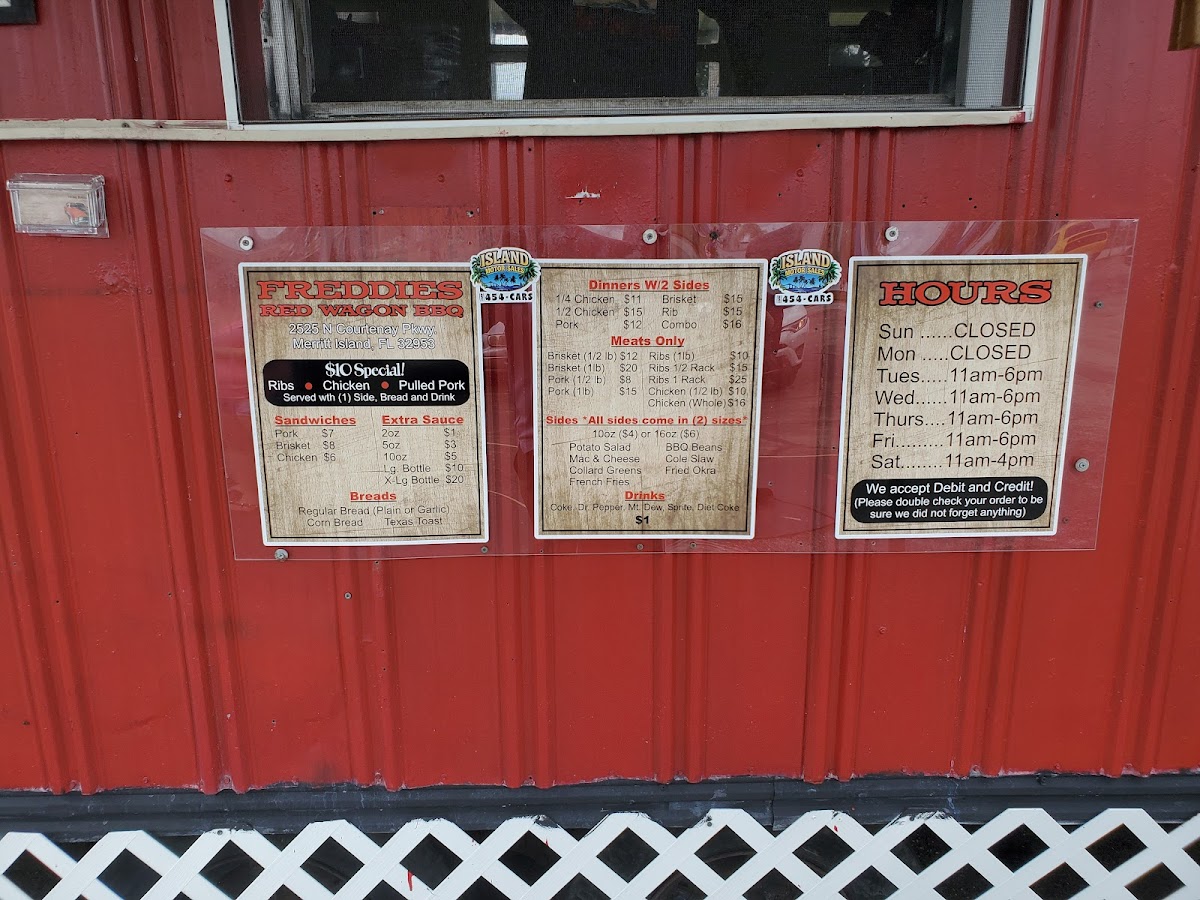 FREDDIES
RED WAGON BBQ
2525 N Courtenay Pkwy,
Merritt Island, FL 32953
$10 Special!
Ribs • Chicken • Pulled Pork
Served wth (1) Side, Bread and Drink
Sandwiches
Pork $7
Brisket $8
Chicken $6
Extra Sauce
2oz $1
5oz $3
10oz $5
Lg. Bottle $10
X-Lg Bottle $20
Breads
Regular Bread (Plain or Garlic)
Corn Bread Texas Toast
ISLAND
MOTOR SALES
454-CARS
Dinners W/2 Sides
1/4 Chicken $11 Brisket $15
1/2 Chicken $15 Rib $15
Pork $12 Combo $16
Meats Only
Brisket (1/2 lb) $12 Ribs (1lb) $10
Brisket (1lb) $20 Ribs 1/2 Rack $15
Pork (1/2 lb) $8 Ribs 1 Rack $25
Pork (1lb) $15 Chicken (1/2 lb) $10
Chicken (Whole) $16
Sides *All sides come in (2) sizes*
10oz ($4) or 16oz ($6)
Potato Salad BBQ Beans
Mac & Cheese Cole Slaw
Collard Greens Fried Okra
French Fries
Drinks
Coke, Dr. Pepper, Mt. Dew, Sprite, Diet Coke
$1
ISLAND
MOTOR SALES
454-CARS
HOURS
Sun ......CLOSED
Mon .....CLOSED
Tues.....11am-6pm
Wed......11am-6pm
Thurs....11am-6pm
Fri.........11am-6pm
Sat........11am-4pm
We accept Debit and Credit!
(Please double check your order to be
sure we did not forget anything)